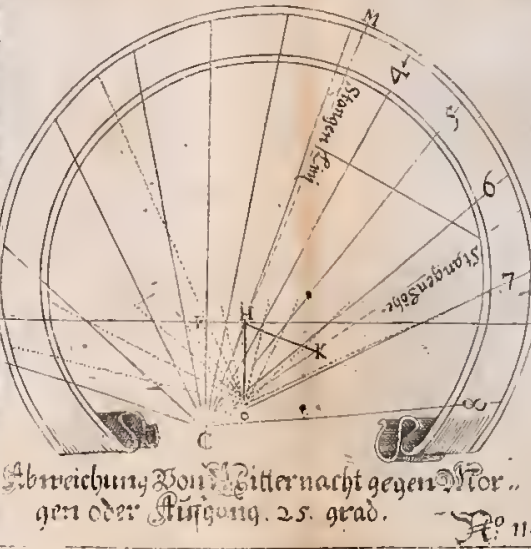 M
4
5
6
7
8
Stangen Lini
Stangen Höhe
H
K
o
C
Abweichung Von Mitternacht gegen Mor„
gen oder Aufgang. 25. grad.
No. 11